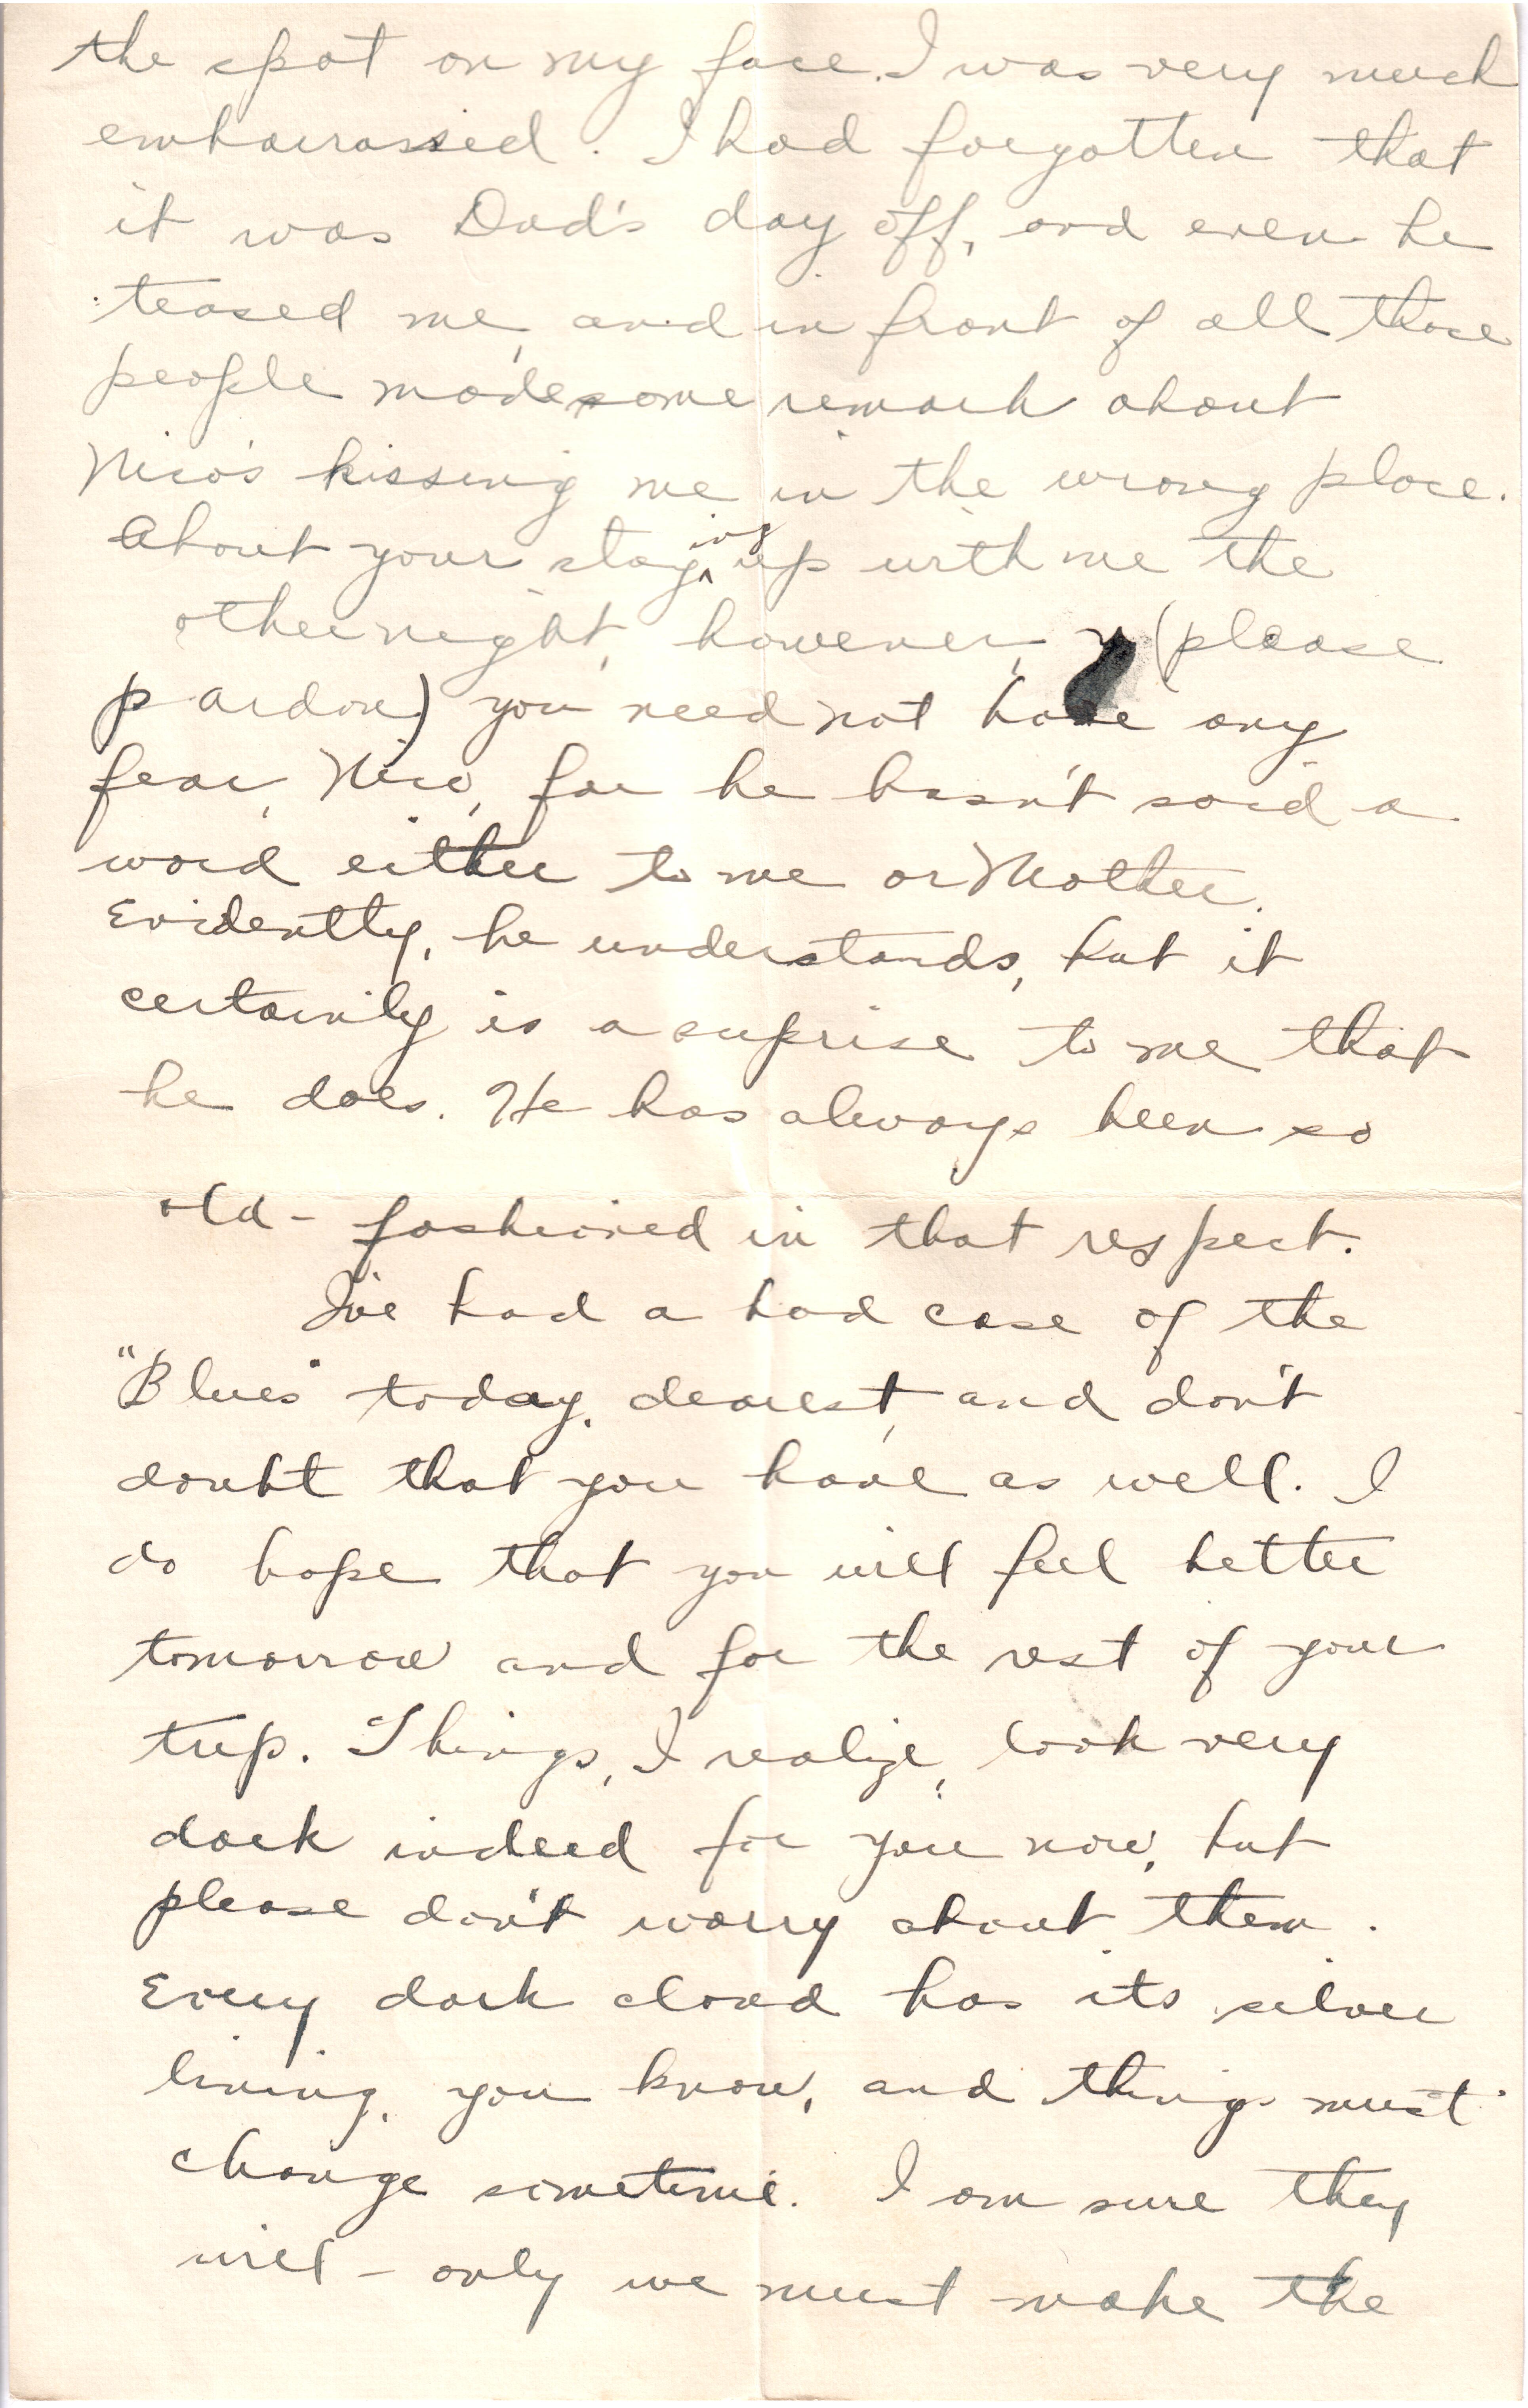 the spot on my face. I was very much
embairassed. I had forgotten that
it was Dad's day off, and even he
teased me, and in front of all those
people made some remark about
Nico's kissing me in the wrong place.
About your staying up with me the
other night, however, (please
pardon) you need not have any
fear, Nico, for he hasn't said a
word either to me or Mother.
Evidently, he understands, but it
certainly is a suprise to me that
he does. He has always been so
old-fashioned in that respect.
I've had a bad case of the
"Blues" today, dearest, and don't
doubt that you have as well. I
do hope that you will feel better
tomorrow and for the rest of your
trip. Things, I realize, look very
dark indeed for you now, but
please don't worry about them.
Every dark cloud has its silver
lining, you know, and things must
change sometime. I am sure they
will - only we must make the